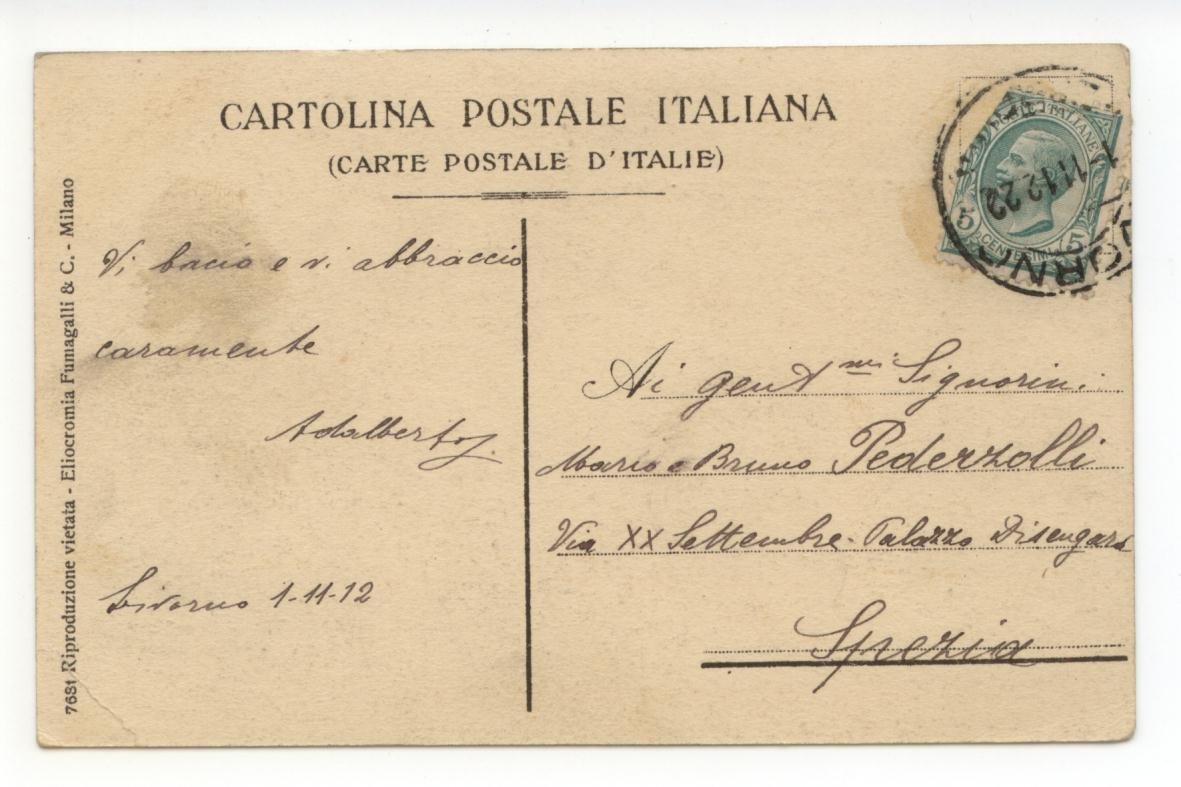 CARTOLINA POSTALE ITALIANA
(CARTE POSTALE D'ITALIE)
7681 Riproduzione vietata - Eliocromia Fumagalli & C. - Milano
Vi bacio e vi abbraccio
caramente
Adalberto
Livorno 1-11-12
POSTE ITALIANE
5 CENTESIMI 5
11 12 22
Ai gent mi Signorini
Mario e Bruno Pederzolli
Via XX Settembre - Palazzo
Spezia